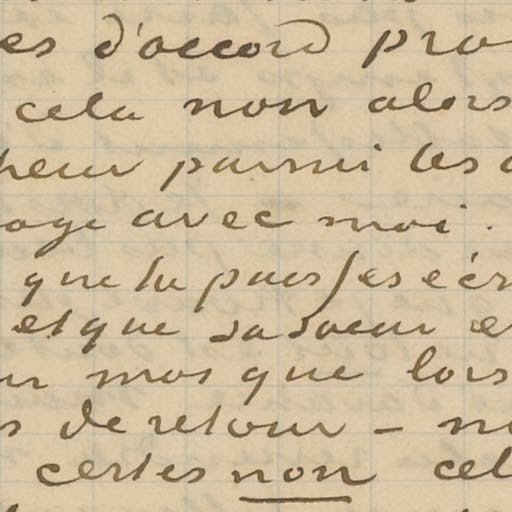 es d'accord pro
cela non alors
heur parmi les
oage avec moi.
que tu puisses écr
et que sa soeur e
ur mos que lors
s de retour - n
certes non cel